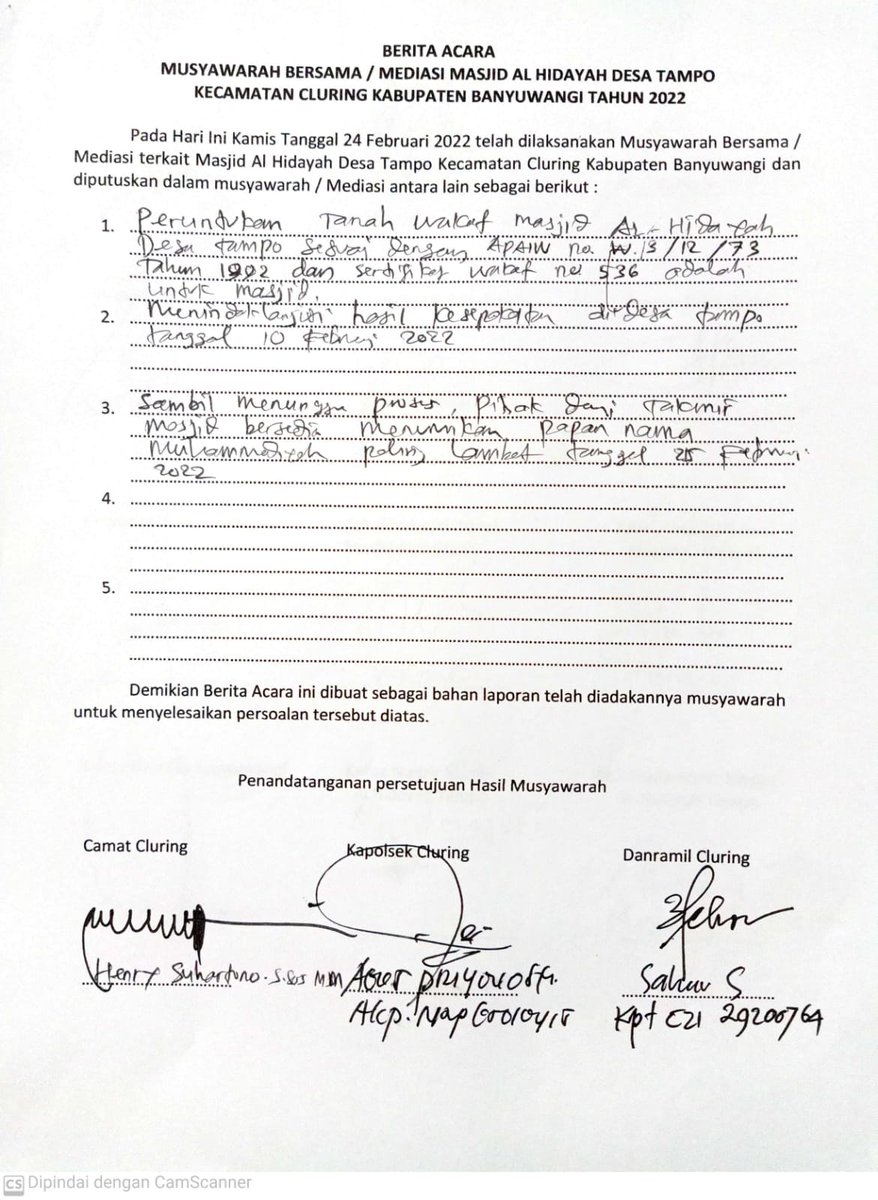 BERITA ACARA
MUSYAWARAH BERSAMA / MEDIASI MASJID AL HIDAYAH DESA TAMPO
KECAMATAN CLURING KABUPATEN BANYUWANGI TAHUN 2022
Pada Hari Ini Kamis Tanggal 24 Februari 2022 telah dilaksanakan Musyawarah Bersama /
Mediasi terkait Masjid Al Hidayah Desa Tampo Kecamatan Cluring Kabupaten Banyuwangi dan
diputuskan dalam musyawarah / Mediasi antara lain sebagai berikut :
1. Peruntukan Tanah wakaf masjid AL-Hidayah
Desa tampo sesuai dengan APAIW no W.13/12/73
Tahun 1992 dan sertifikat wakaf no 536 adalah
untuk masjid.
2. Menindaklanjuti hasil kesepakatan di Desa tampo
tanggal 10 Februari 2022
3. Sambil menunggu proses, pihak dari Takmir
masjid bersedia menurunkan papan nama
Muhammadiyah paling lambat tanggal 25 Februari
2022
4.
5.
Demikian Berita Acara ini dibuat sebagai bahan laporan telah diadakannya musyawarah
untuk menyelesaikan persoalan tersebut diatas.
Penandatanganan persetujuan Hasil Musyawarah
Camat Cluring Kapolsek Cluring Danramil Cluring
Henry Suhartono. S.Sos MM Agus
Kpt CZI 29200764
CS Dipindai dengan CamScanner